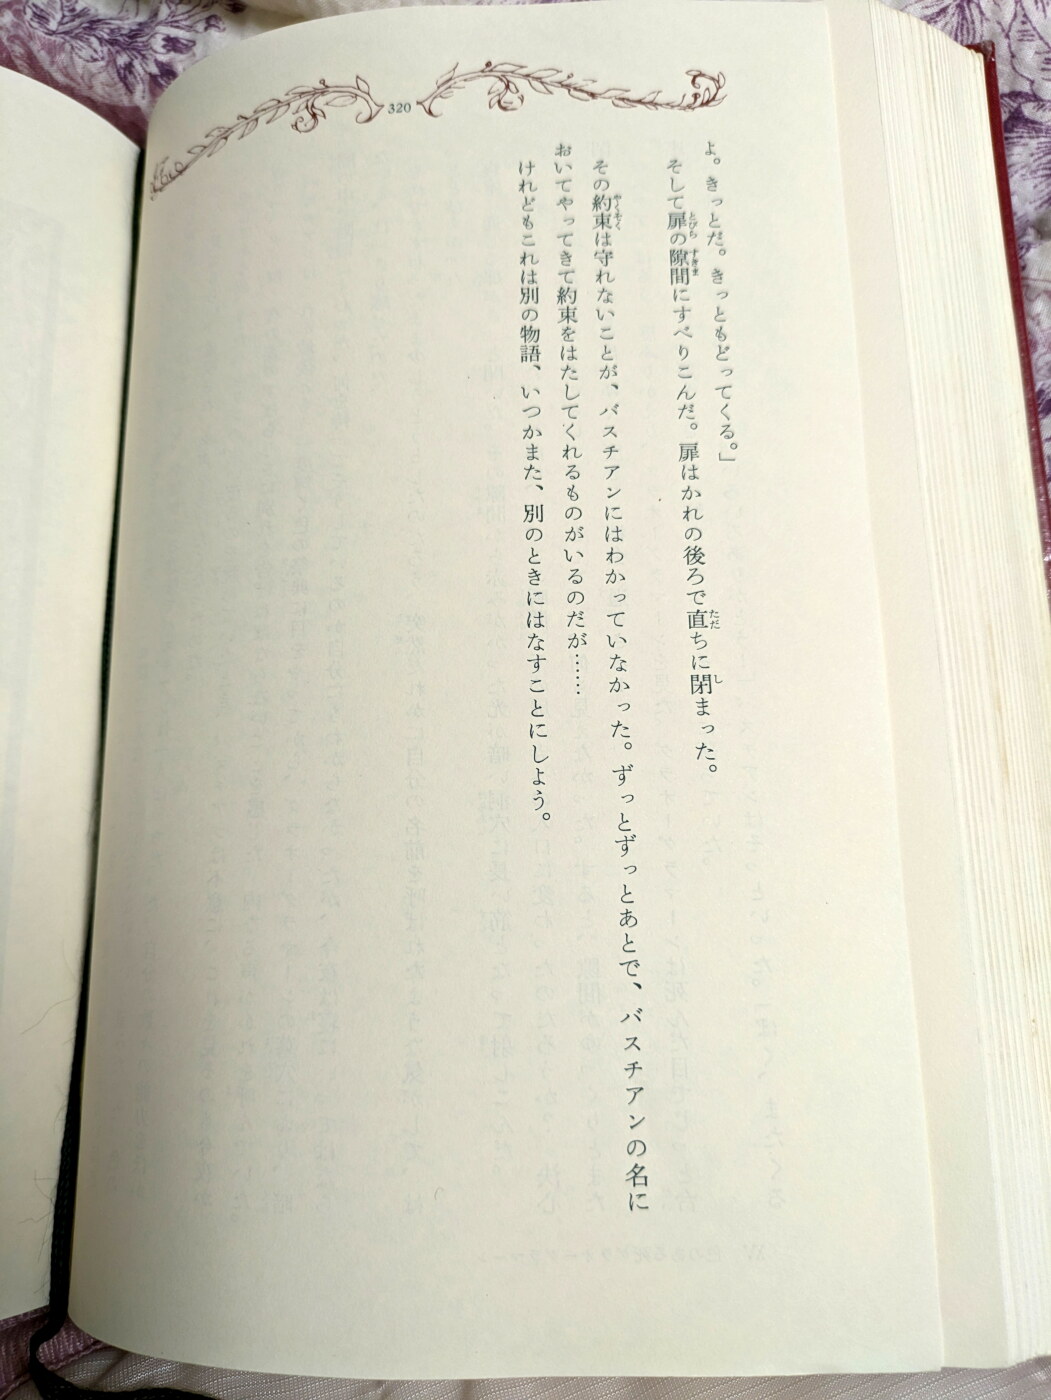 320
よ。きっとだ。きっともどってくる。」
そして扉の隙間にすべりこんだ。扉はかれの後ろで直ちに閉まった。
その約束は守れないことが、バスチアンにはわかっていなかった。ずっとずっとあとで、バスチアンの名に
おいてやってきて約束をはたしてくれるものがいるのだが……
けれどもこれは別の物語、いつかまた、別のときにはなすことにしよう。